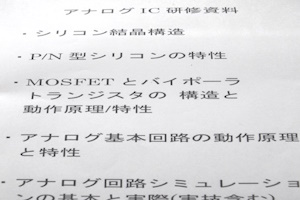 アナログIC研修資料
・シリコン結晶構造
・P/N型シリコンの特性
・MOSFETとバイポーラ
トランジスタの 構造と
動作原理/特性
・アナログ基本回路の動作原理
と特性
・アナログ回路シミュレーショ
ンの基本と実際(実技含む)